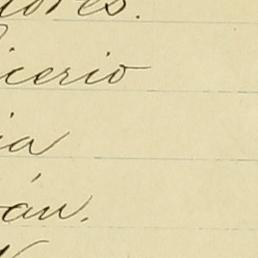 ores.
icerio
ia
án.